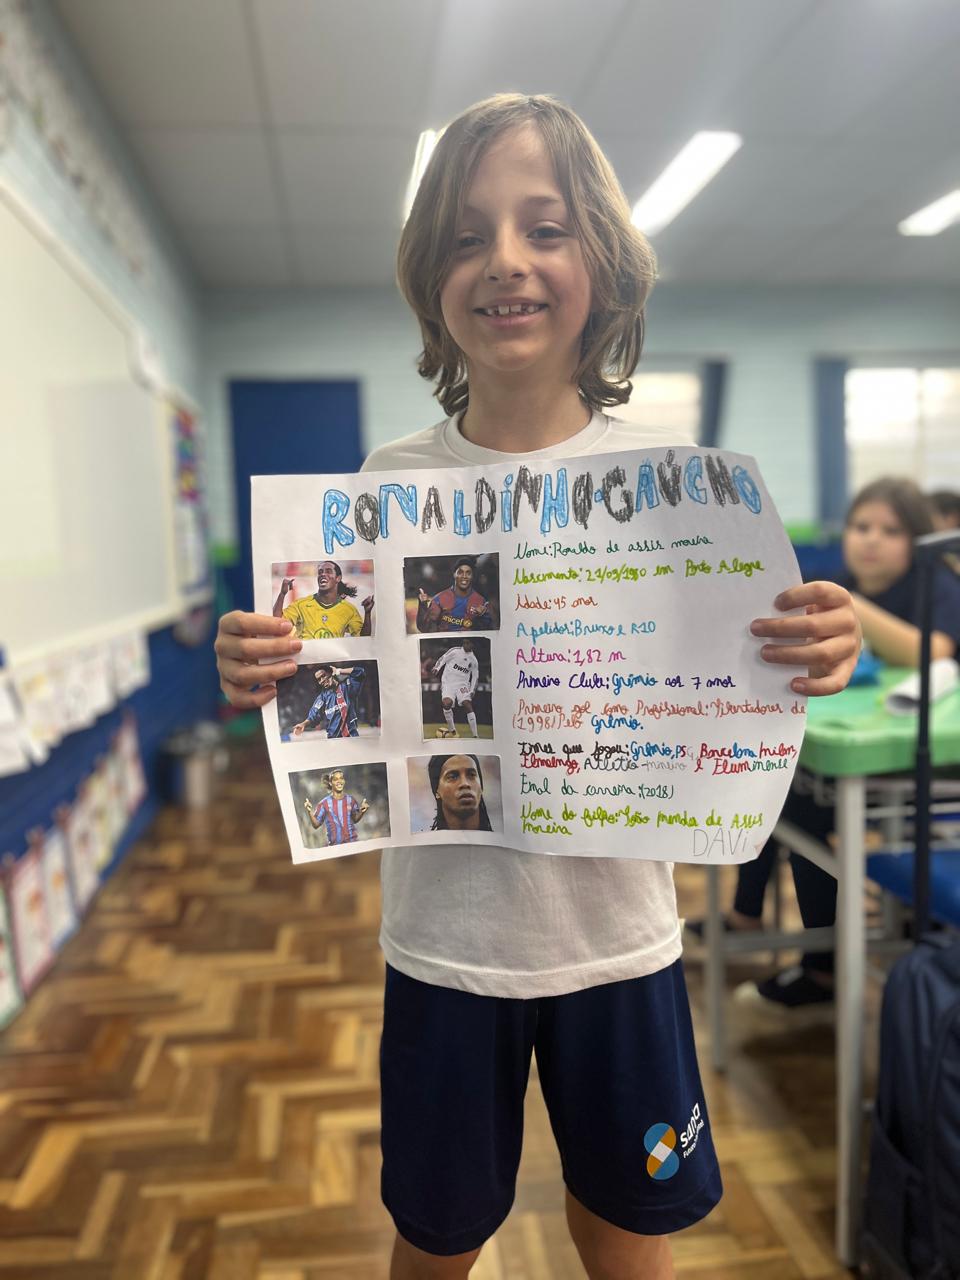 RONALDINHO-GAÚCHO
Nome: Ronaldo de assis moreira
Nascimento: 21/03/1980 em Porto Alegre
Idade: 45 anos
Apelidos: Bruxo e R10
Altura: 1,82 m
Primeiro Clube: Grêmio aos 7 anos
Primeiro gol como Profissional: libertadores de
(1998) Pelo Grêmio.
times que jogou: Grêmio, PSG, Barcelona, milan,
Flamengo, Atlético-mineiro e Fluminense
Final da carreira: (2018)
Nome do filho: João mendes de Assis
moreira
DAVi
unicef
bwin